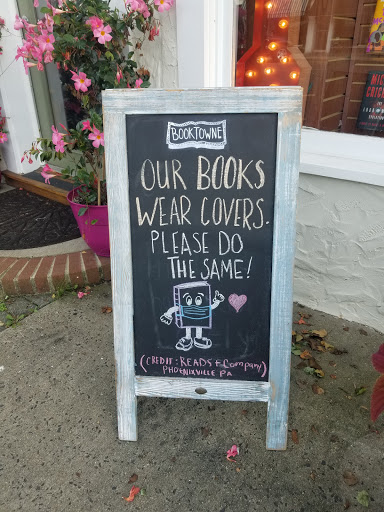 BOOKTOWNE
OUR BOOKS
WEAR COVERS.
PLEASE DO
THE SAME!
(CREDIT: READS & Company)
PHOENIXVILLE PA